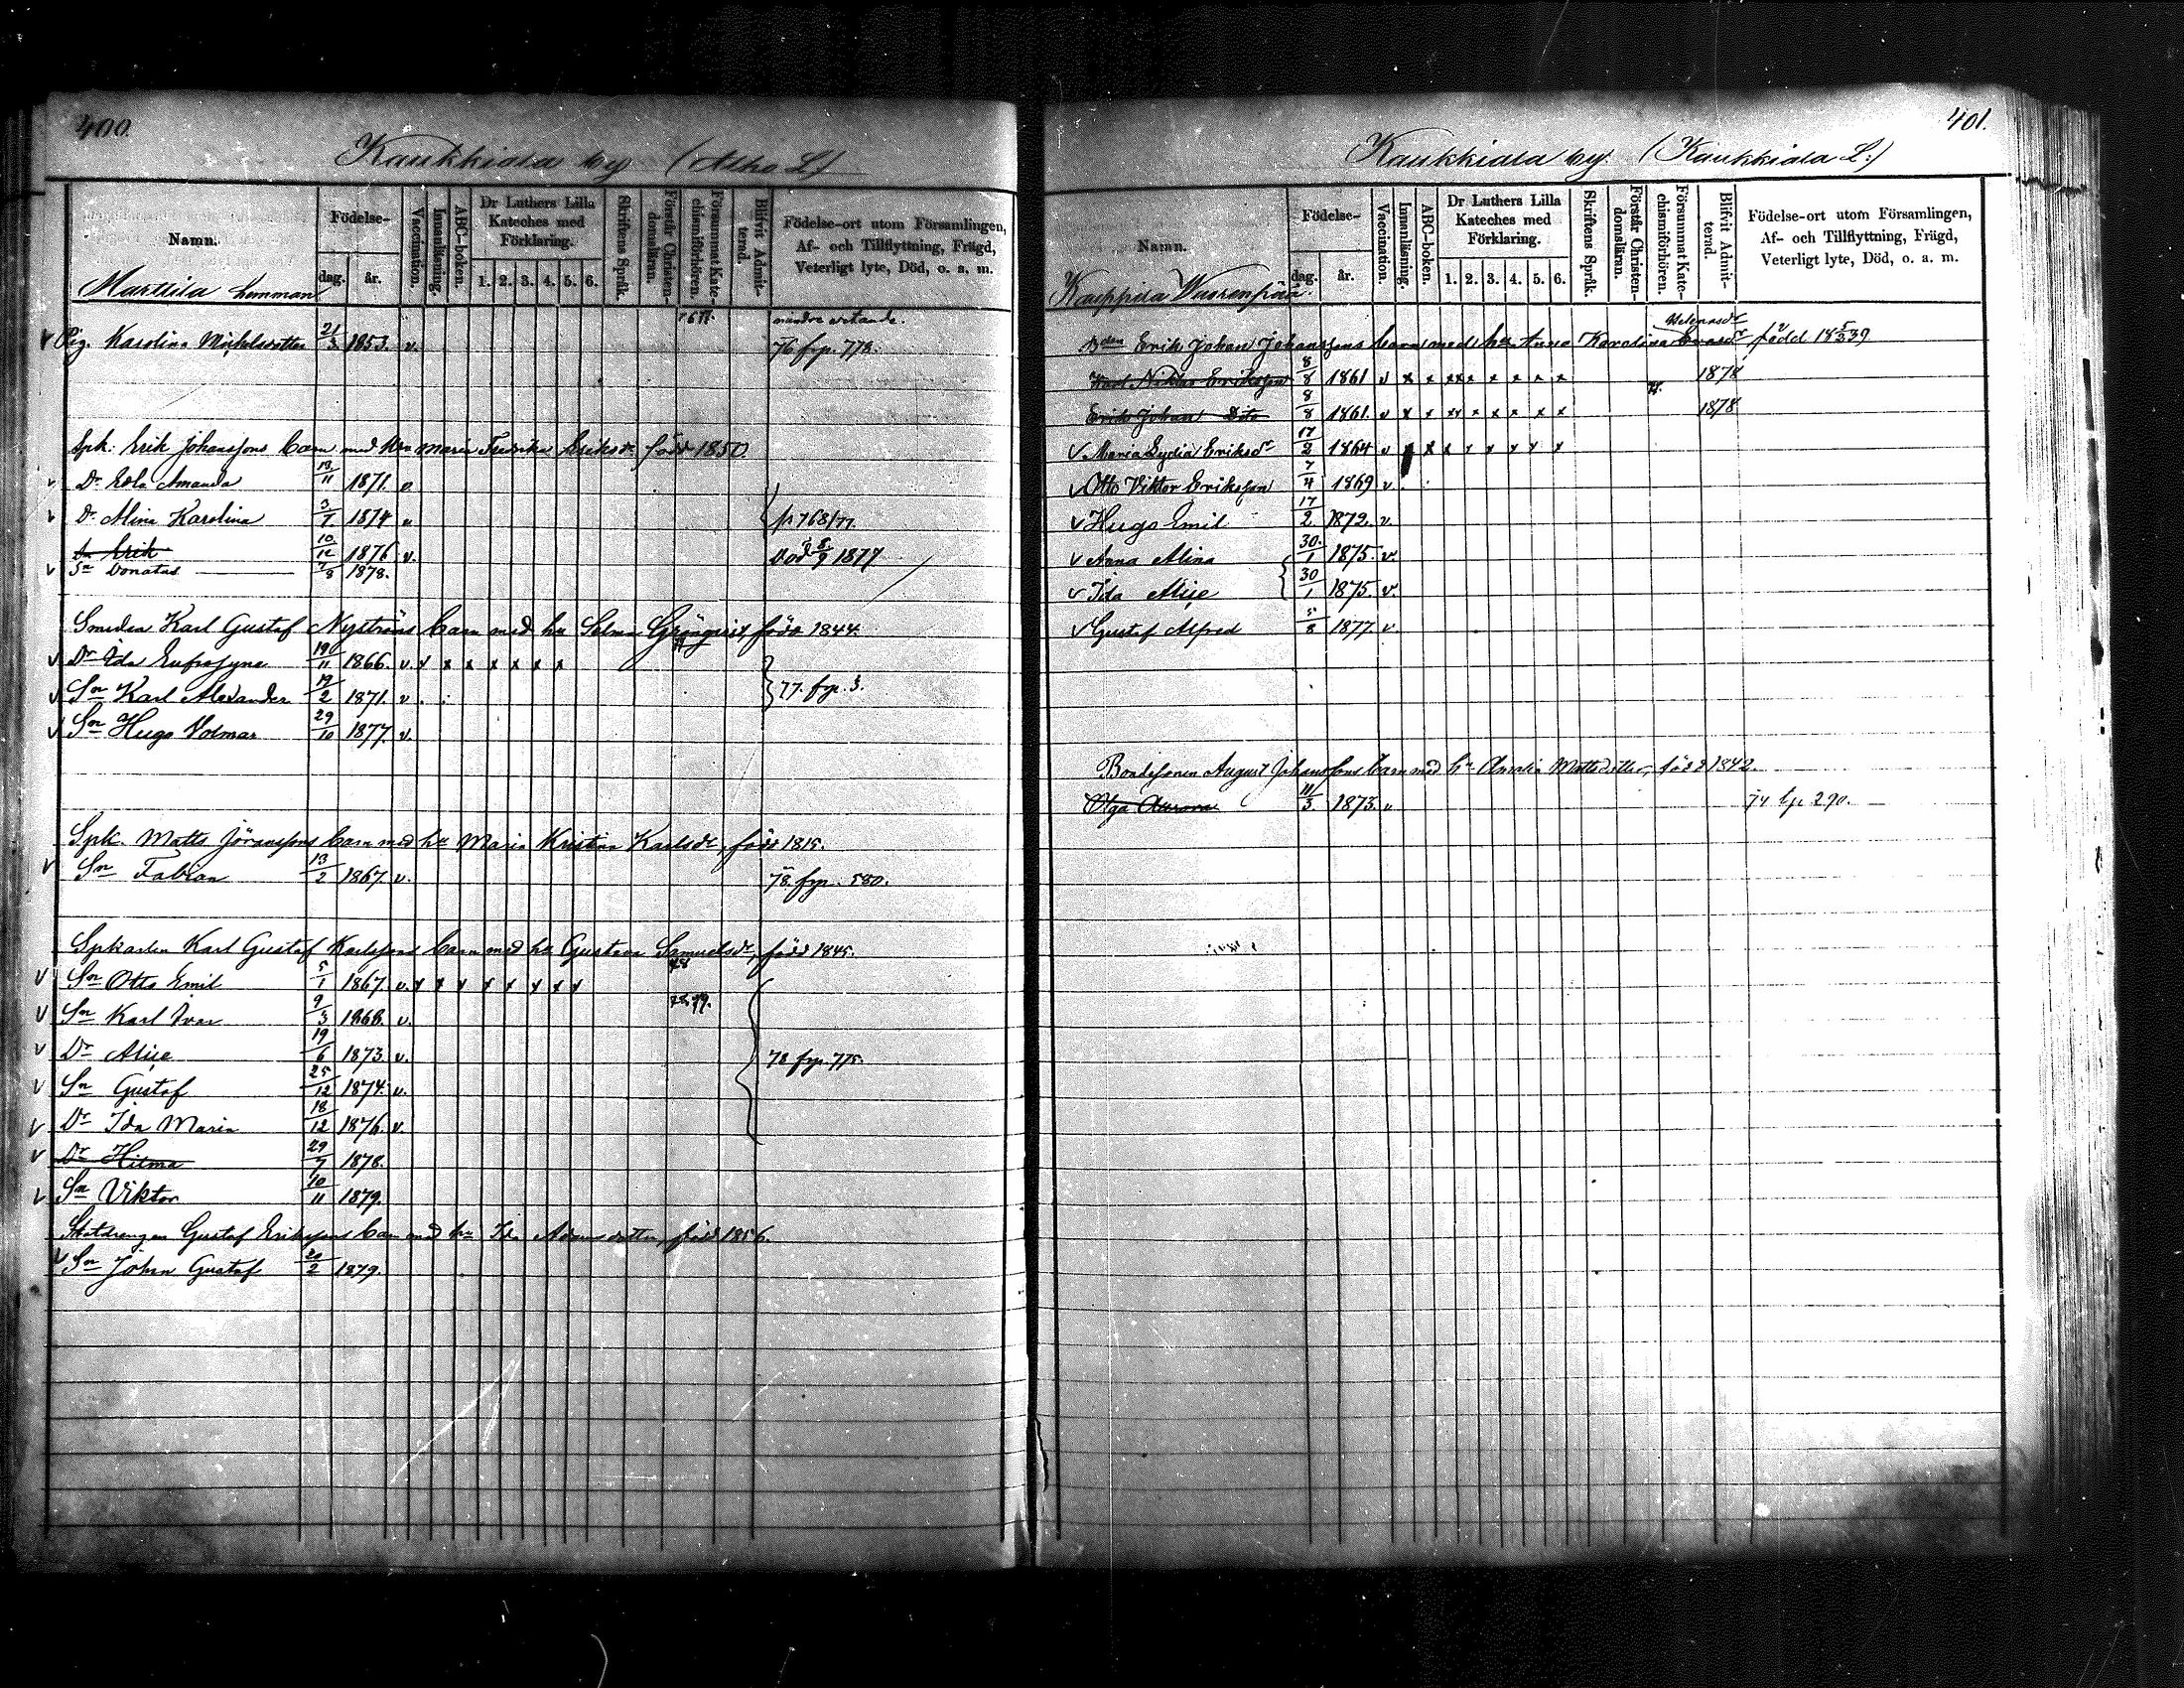 400.
Kaukkiala by (Alho L.)
Namn.
Födelse-
dag. år.
Vaccination.
Innanläsning.
ABC-boken.
Dr Luthers Lilla Kateches med Förklaring.
1. 2. 3. 4. 5. 6.
Skriftens Språk.
Förstår Christendomsläran.
Försummat Katechismiförhören.
Blifvit Admitterad.
Födelse-ort utom Församlingen, Af- och Tillflyttning, Frägd, Veterligt lyte, Död, o. a. m.
Marttila hemman
v Pig. Karolina Michelsdotter 21/3 1853. v. mindre vetande. 76 frp. 778.
Spk. Erik Johanssons barn med hu Maria Fredrika Eriksdr född 1850.
v Dr Edla Amanda 13/11 1871. v
v Dr Alina Karolina 3/7 1874 v p 768/77.
Sn Erik 10/12 1876 v. Död 5/9 1877
v Sn Donatus 7/8 1878.
Smeden Karl Gustaf Nyströms barn med hu Selma Grönqvist, född 1844.
v Dr Ida Eufrosyne 19/11 1866. v. x x x x x x x
v Sn Karl Alexander 19/2 1871. v . . 77. frp. 3.
v Sn Hugo Volmar 29/10 1877. v.
Spk. Matts Jöranssons barn med hu Maria Kristina Karlsdr, född 1815.
v Sn Fabian 13/2 1867. v. 78. frp. 580.
Spkarlen Karl Gustaf Karlssons barn med hu Gustava Samuelsdr, född 1845.
v Sn Otto Emil 5/1 1867. v. x x x x x x x x
v Sn Karl Ivar 9/3 1868. v. 78. 79.
v Dr Alise 19/6 1873. v. 78 frp. 775.
v Sn Gustaf 25/12 1874. v.
v Dr Ida Maria 18/12 1876. v.
v Dr Hilma 29/7 1878.
v Sn Viktor 10/11 1879.
Statdrengen Gustaf Erikssons barn med hu Ida Adamsdotter, född 1856.
v Sn Johan Gustaf 20/2 1879.
401.
Kaukkiala by (Kaukkiala L:)
Namn.
Födelse-
dag. år.
Vaccination.
Innanläsning.
ABC-boken.
Dr Luthers Lilla Kateches med Förklaring.
1. 2. 3. 4. 5. 6.
Skriftens Språk.
Förstår Christendomsläran.
Försummat Katechismiförhören.
Blifvit Admitterad.
Födelse-ort utom Församlingen, Af- och Tillflyttning, Frägd, Veterligt lyte, Död, o. a. m.
Kauppila Vuorenpää.
Erik Johan Johanssons barn med hu Anna Karolina Helenasdr född 18 5/3 39
Karl Niklas Eriksson 8/8 1861 v x x xx x x x x x 1878
Erik Johan Dito 8/8 1861. v x x xx x x x x x 1878
v Maria Lydia Eriksdr 17/2 1864 v x x x x x x x
v Otto Viktor Eriksson 7/4 1869 v . .
v Hugo Emil 17/2 1872. v.
v Anna Alina 30./1 1875. v.
v Ida Alise 30/1 1875. v.
v Gustaf Alfred 5/8 1877. v.
Bondesonen August Johanssons barn med hu Amalia Mattsdotter, född 1842.
Olga Aurora 11/3 1873. v 74 frp 290.